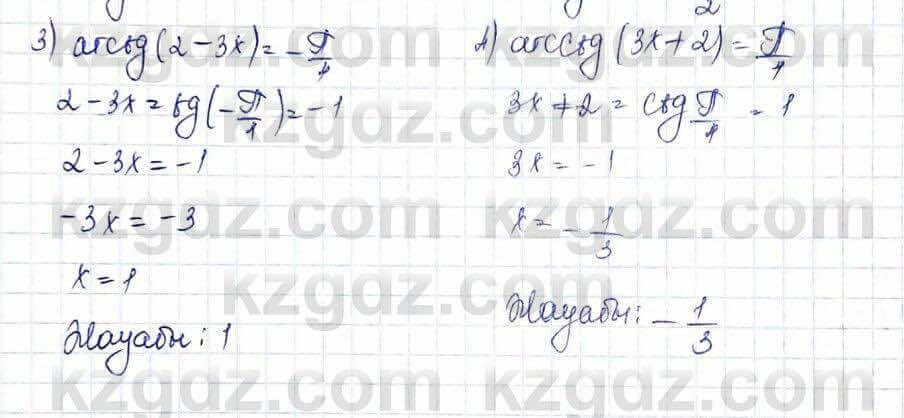 3) arctg(2-3x) = -π/4
2-3x = tg(-π/4) = -1
2-3x = -1
-3x = -3
x = 1
Жауабы: 1
4) arcctg(3x+2) = π/4
3x+2 = ctg π/4 = 1
3x = -1
x = -1/3
Жауабы: -1/3
kzgdz.com
kzgdz.com
kzgdz.com
kzgdz.com
kzgdz.com
kzgdz.com